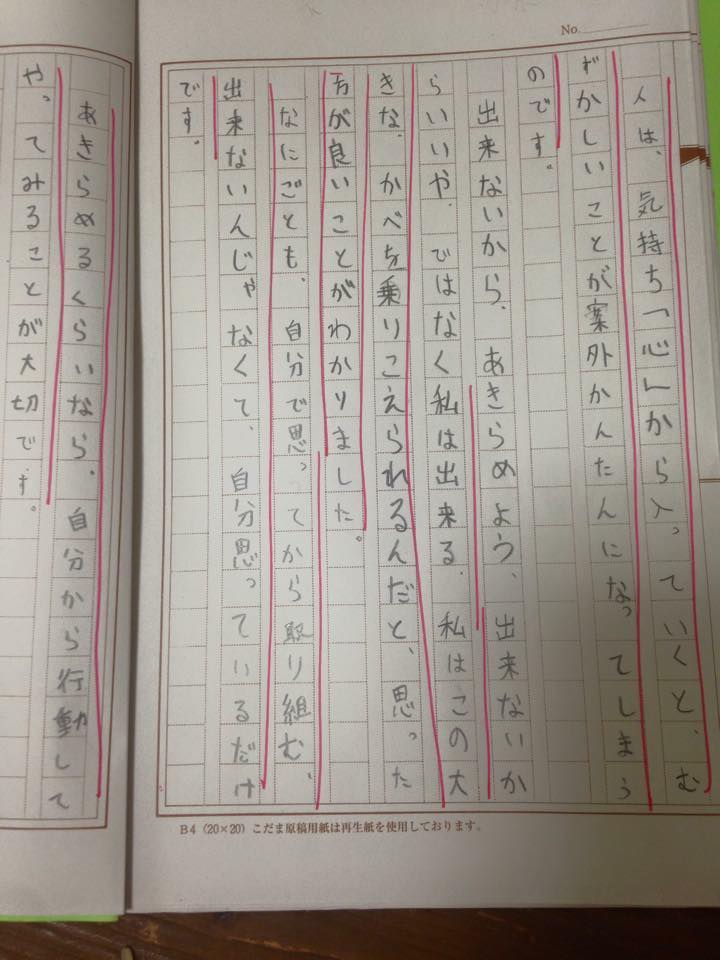 No.
人は、気持ち「心」から入っていくと、む
ずかしいことが案外かんたんになってしまう
のです。
出来ないから、あきらめよう、出来ないか
らいいや、ではなく私は出来る、私はこの大
きな、かべを乗りこえられるんだと、思った
方が良いことがわかりました。
なにごとも、自分で思ってから取り組む、
出来ないんじゃなくて、自分思っているだけ
です。
B4（20×20）こだま原稿用紙は再生紙を使用しております。
あきらめるくらいなら、自分から行動して
やってみることが大切です。